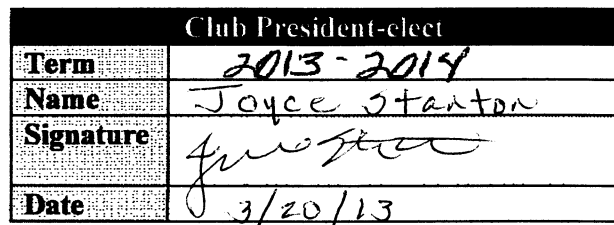 Club President-elect
Term 2013-2014
Name Joyce Stanton
Signature
Date 3/20/13